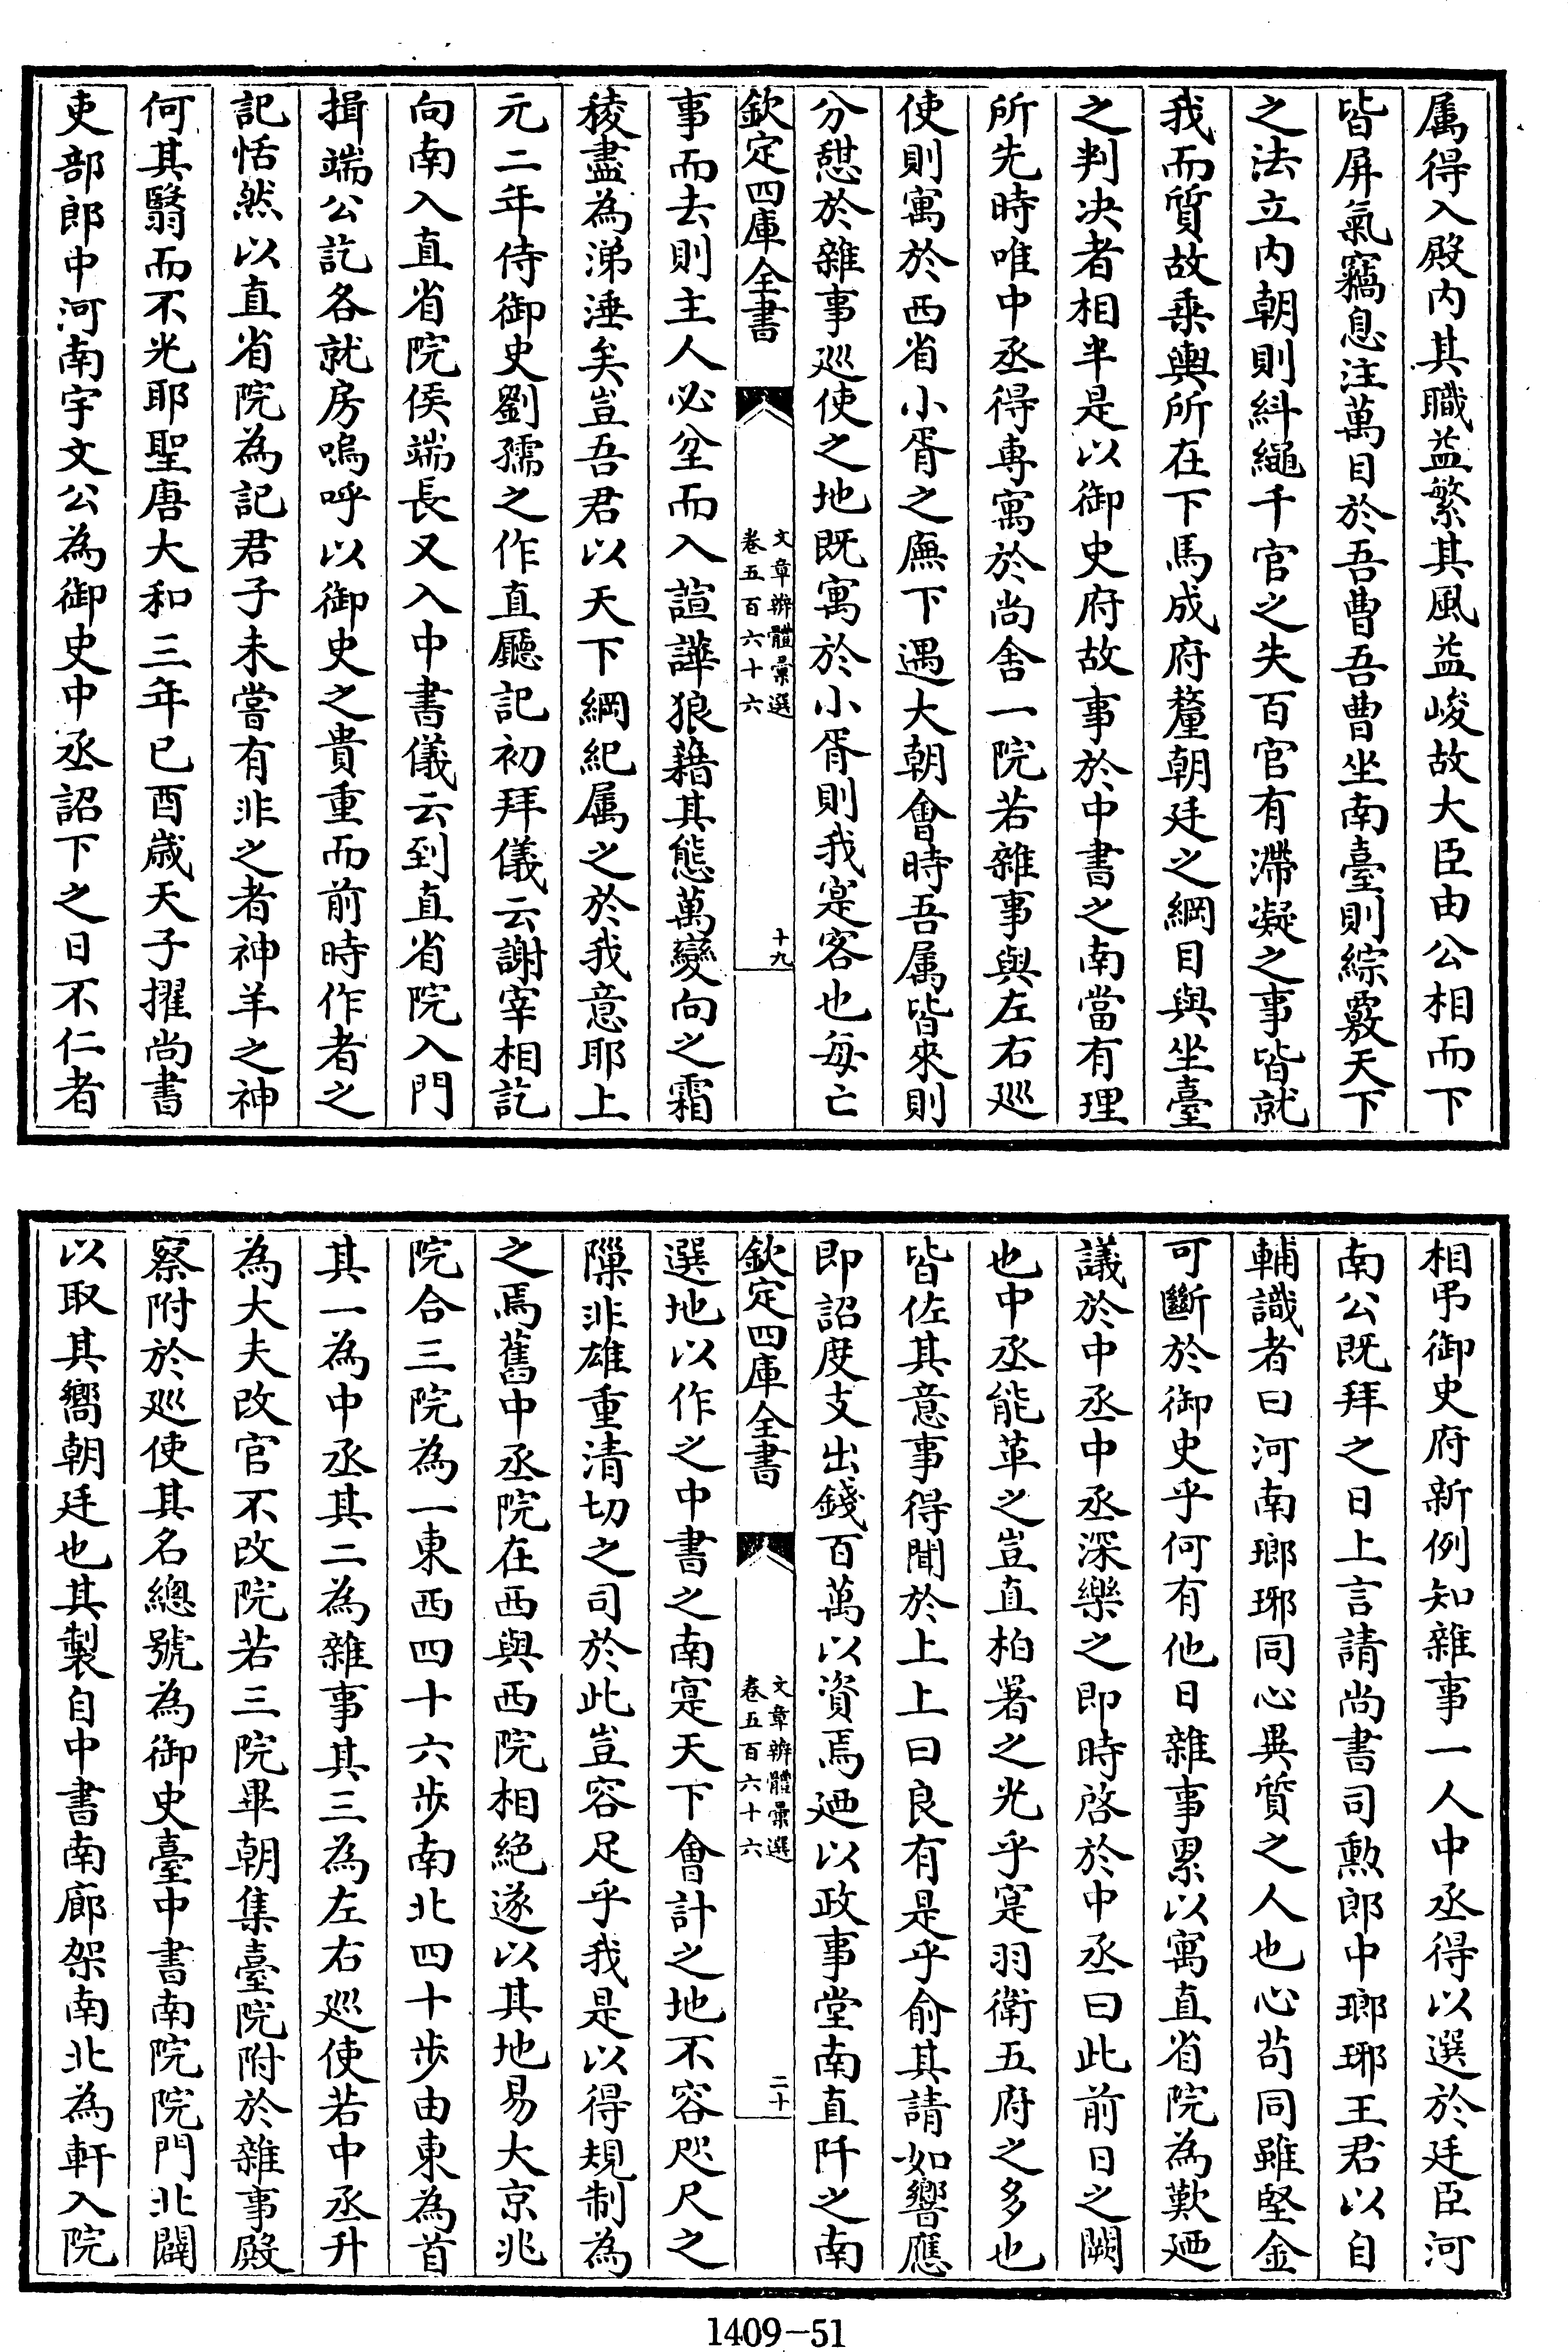 属得入殿内其職益繁其風益峻故大臣由公相而下
皆屏氣竊息注萬目於吾曹吾曹坐南臺則綜覈天下
之法立内朝則糾繩千官之失百官有滯凝之事皆就
我而質故乗輿所在下馬成府釐朝廷之綱目與坐臺
之判决者相半是以御史府故事於中書之南當有理
所先時唯中丞得専寓於尚舎一院若雜事與左右廵
使則寓於西省小胥之廡下遇大朝會時吾属皆來則
分憇於雜事廵使之地既寓於小胥則我寔客也每亡
欽定四庫全書
文章辨體彙選
卷五百六十六
十九
事而去則主人必坌而入諠譁狼藉其態萬變向之霜
稜盡為涕洟矣豈吾君以天下綱紀属之於我意耶上
元二年侍御史劉孺之作直廳記初拜儀云謝宰相訖
向南入直省院候端長又入中書儀云到直省院入門
揖端公訖各就房嗚呼以御史之貴重而前時作者之
記恬然以直省院為記君子未嘗有非之者神羊之神
何其翳而不光耶聖唐大和三年已酉歳天子擢尚書
吏部郎中河南宇文公為御史中丞詔下之日不仁者
相弔御史府新例知雜事一人中丞得以選於廷臣河
南公既拜之日上言請尚書司勲郎中瑯琊王君以自
輔識者曰河南瑯琊同心異質之人也心茍同雖堅金
可斷於御史乎何有他日雜事累以寓直省院為歎廼
議於中丞中丞深樂之即時啓於中丞曰此前日之闕
也中丞能革之豈直柏署之光乎寔羽衛五府之多也
皆佐其意事得聞於上上曰良有是乎俞其請如響應
即詔度支出錢百萬以資焉廼以政事堂南直阡之南
欽定四庫全書
文章辨體彙選
卷五百六十六
二十
選地以作之中書之南寔天下會計之地不容咫尺之
隟非雄重清切之司於此豈容足乎我是以得規制為
之焉舊中丞院在西與西院相絶遂以其地易大京兆
院合三院為一東西四十六步南北四十步由東為首
其一為中丞其二為雜事其三為左右廵使若中丞升
為大夫改官不改院若三院畢朝集臺院附於雜事殿
察附於廵使其名總號為御史臺中書南院院門北闢
以取其嚮朝廷也其製自中書南廊架南北為軒入院
1409-51